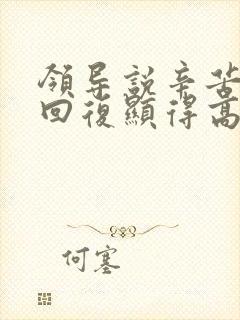 領导説辛苦
回復顯得高
何塞